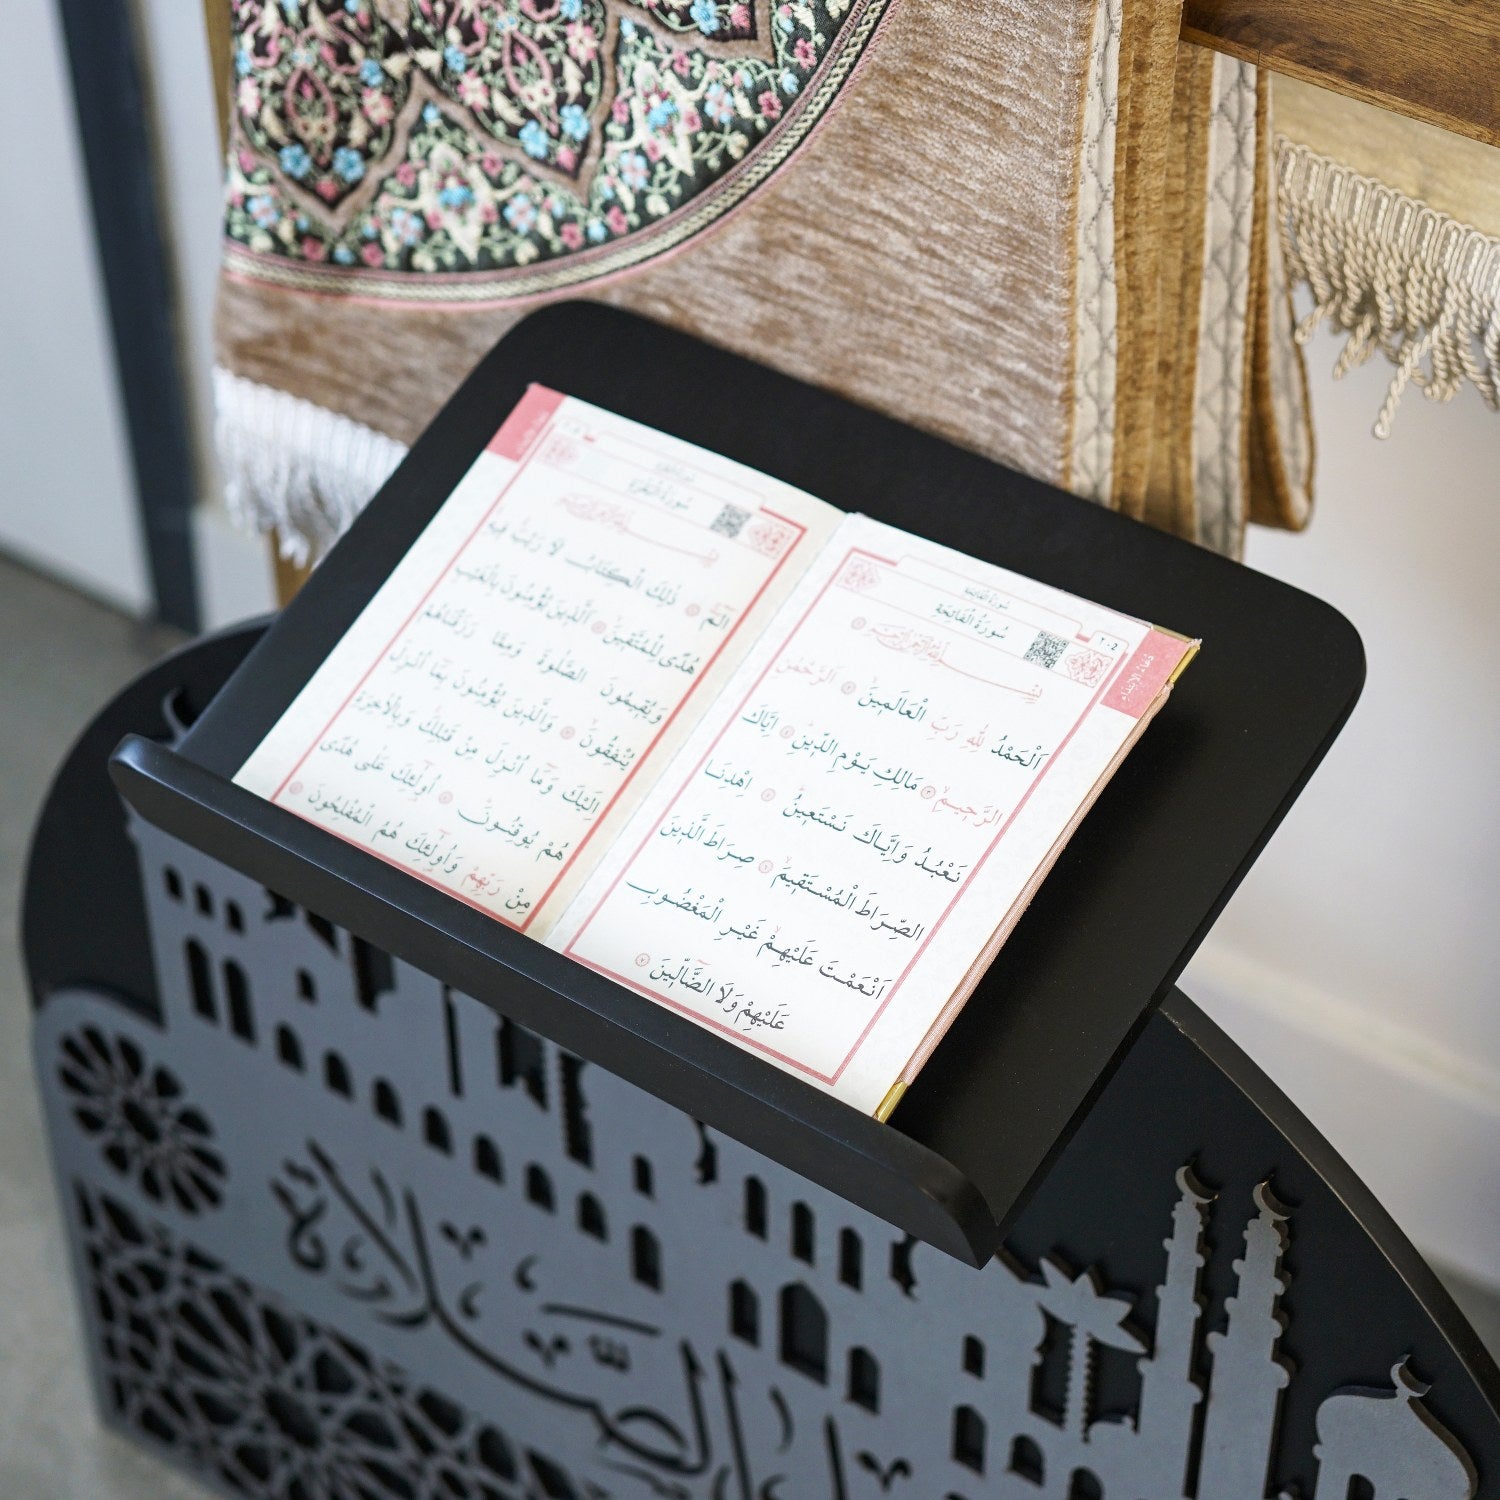 ٢٠٢
دُعَاءُ الْاِبْتِدَاءِ
سُورَةُ الْفَاتِحَةِ
سُورَةُ الْفَاتِحَةِ
بِسْمِ اللّٰهِ الرَّحْمٰنِ الرَّحِيمِ ۝١
اَلْحَمْدُ لِلّٰهِ رَبِّ الْعَالَمِينَۙ ۝٢ اَلرَّحْمٰنِ
الرَّحِيمِۙ ۝٣ مَالِكِ يَوْمِ الدِّينِۜ ۝٤ اِيَّاكَ
نَعْبُدُ وَاِيَّاكَ نَسْتَعِينُۜ ۝٥ اِهْدِنَا
الصِّرَاطَ الْمُسْتَقِيمَۙ ۝٦ صِرَاطَ الَّذِينَ
اَنْعَمْتَ عَلَيْهِمْۙ غَيْرِ الْمَغْضُوبِ
عَلَيْهِمْ وَلَا الضَّٓالِّينَ ۝٧
سُورَةُ الْبَقَرَةِ
بِسْمِ اللّٰهِ الرَّحْمٰنِ الرَّحِيمِ
الٓمٓۜ ۝١ ذٰلِكَ الْكِتَابُ لَا رَيْبَۚ فِيهِۚ
هُدًى لِلْمُتَّقِينَۙ ۝٢ اَلَّذِينَ يُؤْمِنُونَ بِالْغَيْبِ
وَيُقِيمُونَ الصَّلٰوةَ وَمِمَّا رَزَقْنَاهُمْ
يُنْفِقُونَۙ ۝٣ وَالَّذِينَ يُؤْمِنُونَ بِمَٓا اُنْزِلَ
اِلَيْكَ وَمَٓا اُنْزِلَ مِنْ قَبْلِكَۚ وَبِالْاٰخِرَةِ
هُمْ يُوقِنُونَۜ ۝٤ اُو۬لٰٓئِكَ عَلٰى هُدًى
مِنْ رَبِّهِمْ وَاُو۬لٰٓئِكَ هُمُ الْمُفْلِحُونَ ۝٥
الصَّلَاةُ